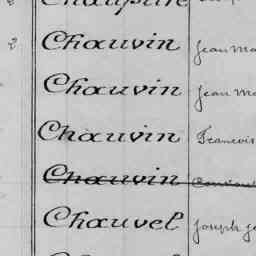 2 Chauvin Jean Ma
Chauvin Jean Ma
Chauvin Francois
Chauvin
Chauvel Joseph Je